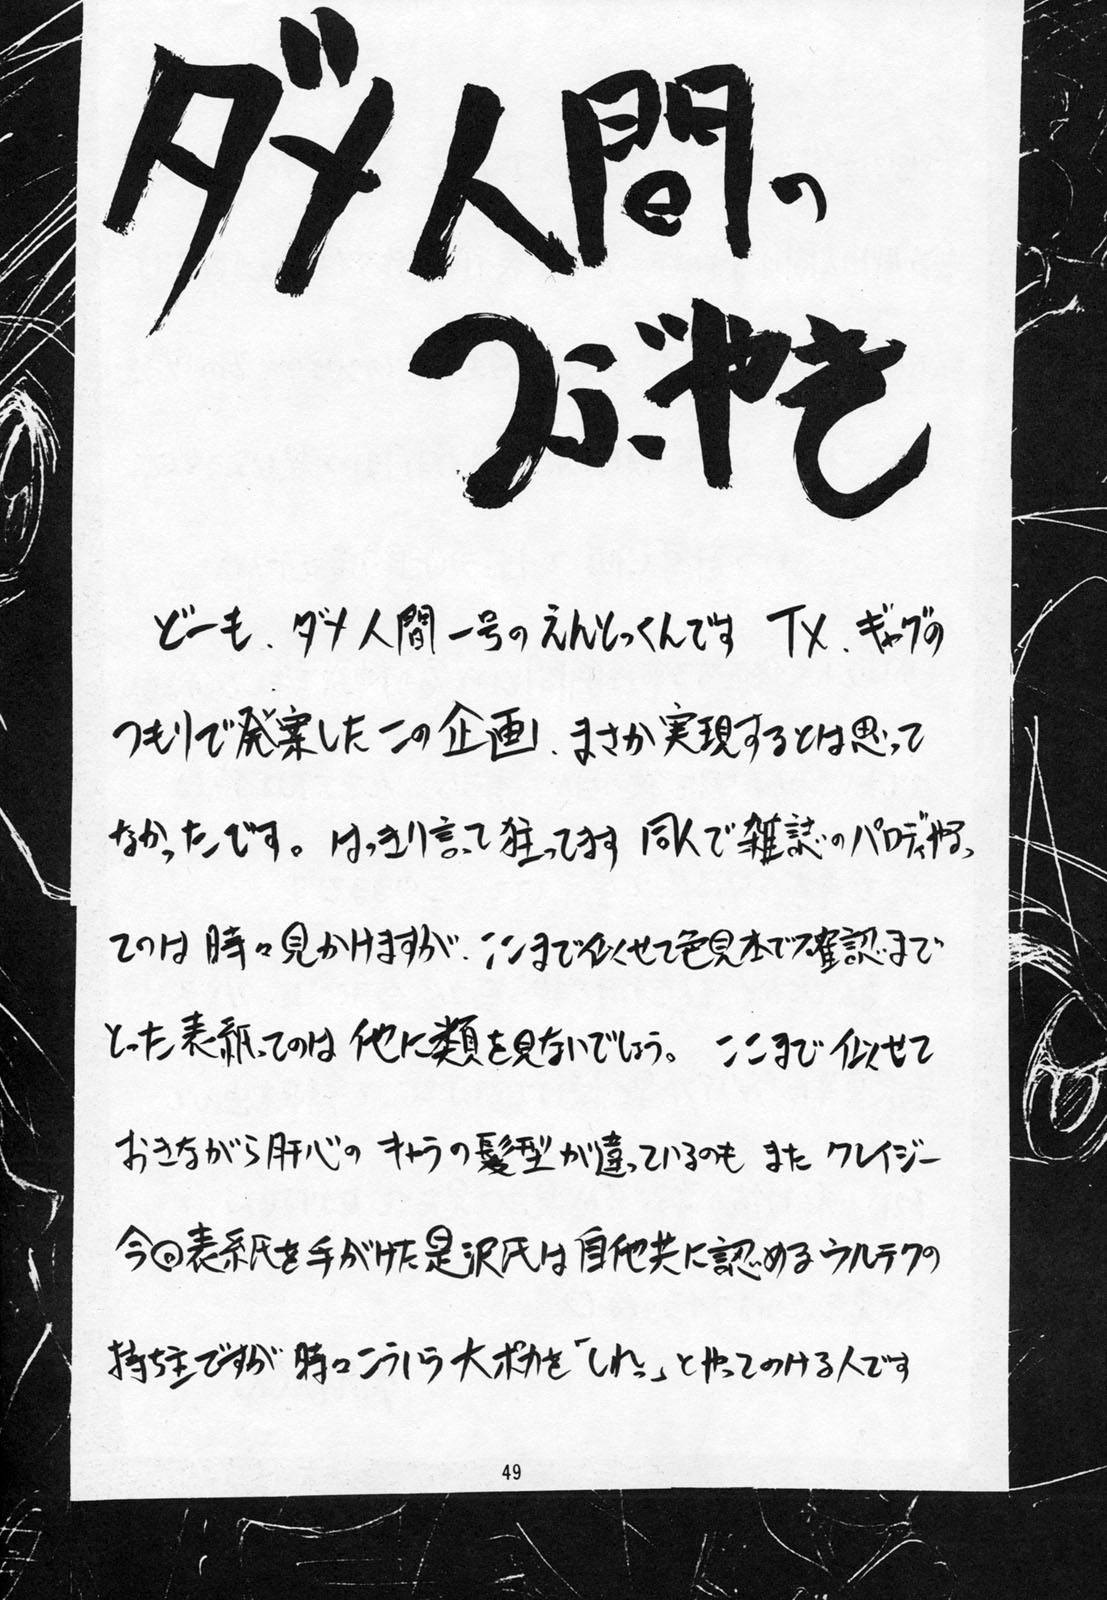 ダメ人間の
つぶやき
どーも、ダメ人間一号のえんとっくんです TX、ギャグの
つもりで発案したこの企画、まさか実現するとは思って
なかったです。はっきり言って狂ってます 同人で雑誌のパロディやるっ
てのは時々見かけますが、ここまで似せて色見本で確認まで
とった表紙ってのは他に類を見ないでしょう。 ここまで似せて
おきながら肝心のキャラの髪型が違っているのもまたクレイジー
今回表紙を手がけた是沢氏は自他共に認めるウルテクの
持ち主ですが時々こういう大ポカを「しれっ」とやってのける人です
49